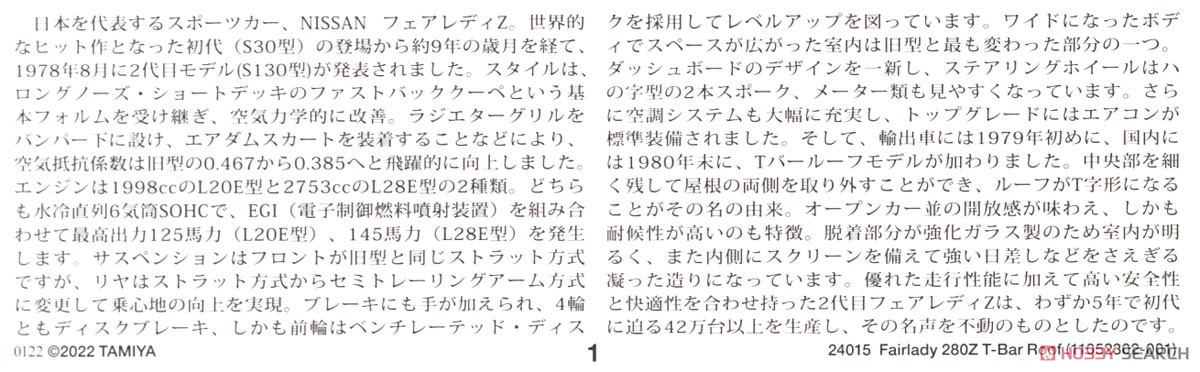 日本を代表するスポーツカー、NISSAN フェアレディZ。世界的
なヒット作となった初代（S30型）の登場から約9年の歳月を経て、
1978年8月に2代目モデル(S130型)が発表されました。スタイルは、
ロングノーズ・ショートデッキのファストバッククーペという基
本フォルムを受け継ぎ、空気力学的に改善。ラジエターグリルを
バンパー下に設け、エアダムスカートを装着することなどにより、
空気抵抗係数は旧型の0.467から0.385へと飛躍的に向上しました。
エンジンは1998ccのL20E型と2753ccのL28E型の2種類。どちら
も水冷直列6気筒SOHCで、EGI（電子制御燃料噴射装置）を組み合
わせて最高出力125馬力（L20E型）、145馬力（L28E型）を発生
します。サスペンションはフロントが旧型と同じストラット方式
ですが、リヤはストラット方式からセミトレーリングアーム方式
に変更して乗心地の向上を実現。ブレーキにも手が加えられ、4輪
ともディスクブレーキ、しかも前輪はベンチレーテッド・ディス
クを採用してレベルアップを図っています。ワイドになったボデ
ィでスペースが広がった室内は旧型と最も変わった部分の一つ。
ダッシュボードのデザインを一新し、ステアリングホイールはハ
の字型の2本スポーク、メーター類も見やすくなっています。さら
に空調システムも大幅に充実し、トップグレードにはエアコンが
標準装備されました。そして、輸出車には1979年初めに、国内に
は1980年末に、Tバールーフモデルが加わりました。中央部を細
く残して屋根の両側を取り外すことができ、ルーフがT字形になる
ことがその名の由来。オープンカー並の開放感が味わえ、しかも
耐候性が高いのも特徴。脱着部分が強化ガラス製のため室内が明
るく、また内側にスクリーンを備えて強い日差しなどをさえぎる
凝った造りになっています。優れた走行性能に加えて高い安全性
と快適性を合わせ持った2代目フェアレディZは、わずか5年で初代
に迫る42万台以上を生産し、その名声を不動のものとしたのです。
0122 ©2022 TAMIYA
1
24015 Fairlady 280Z T-Bar Roof (11052302-001)
HOBBY SEARCH